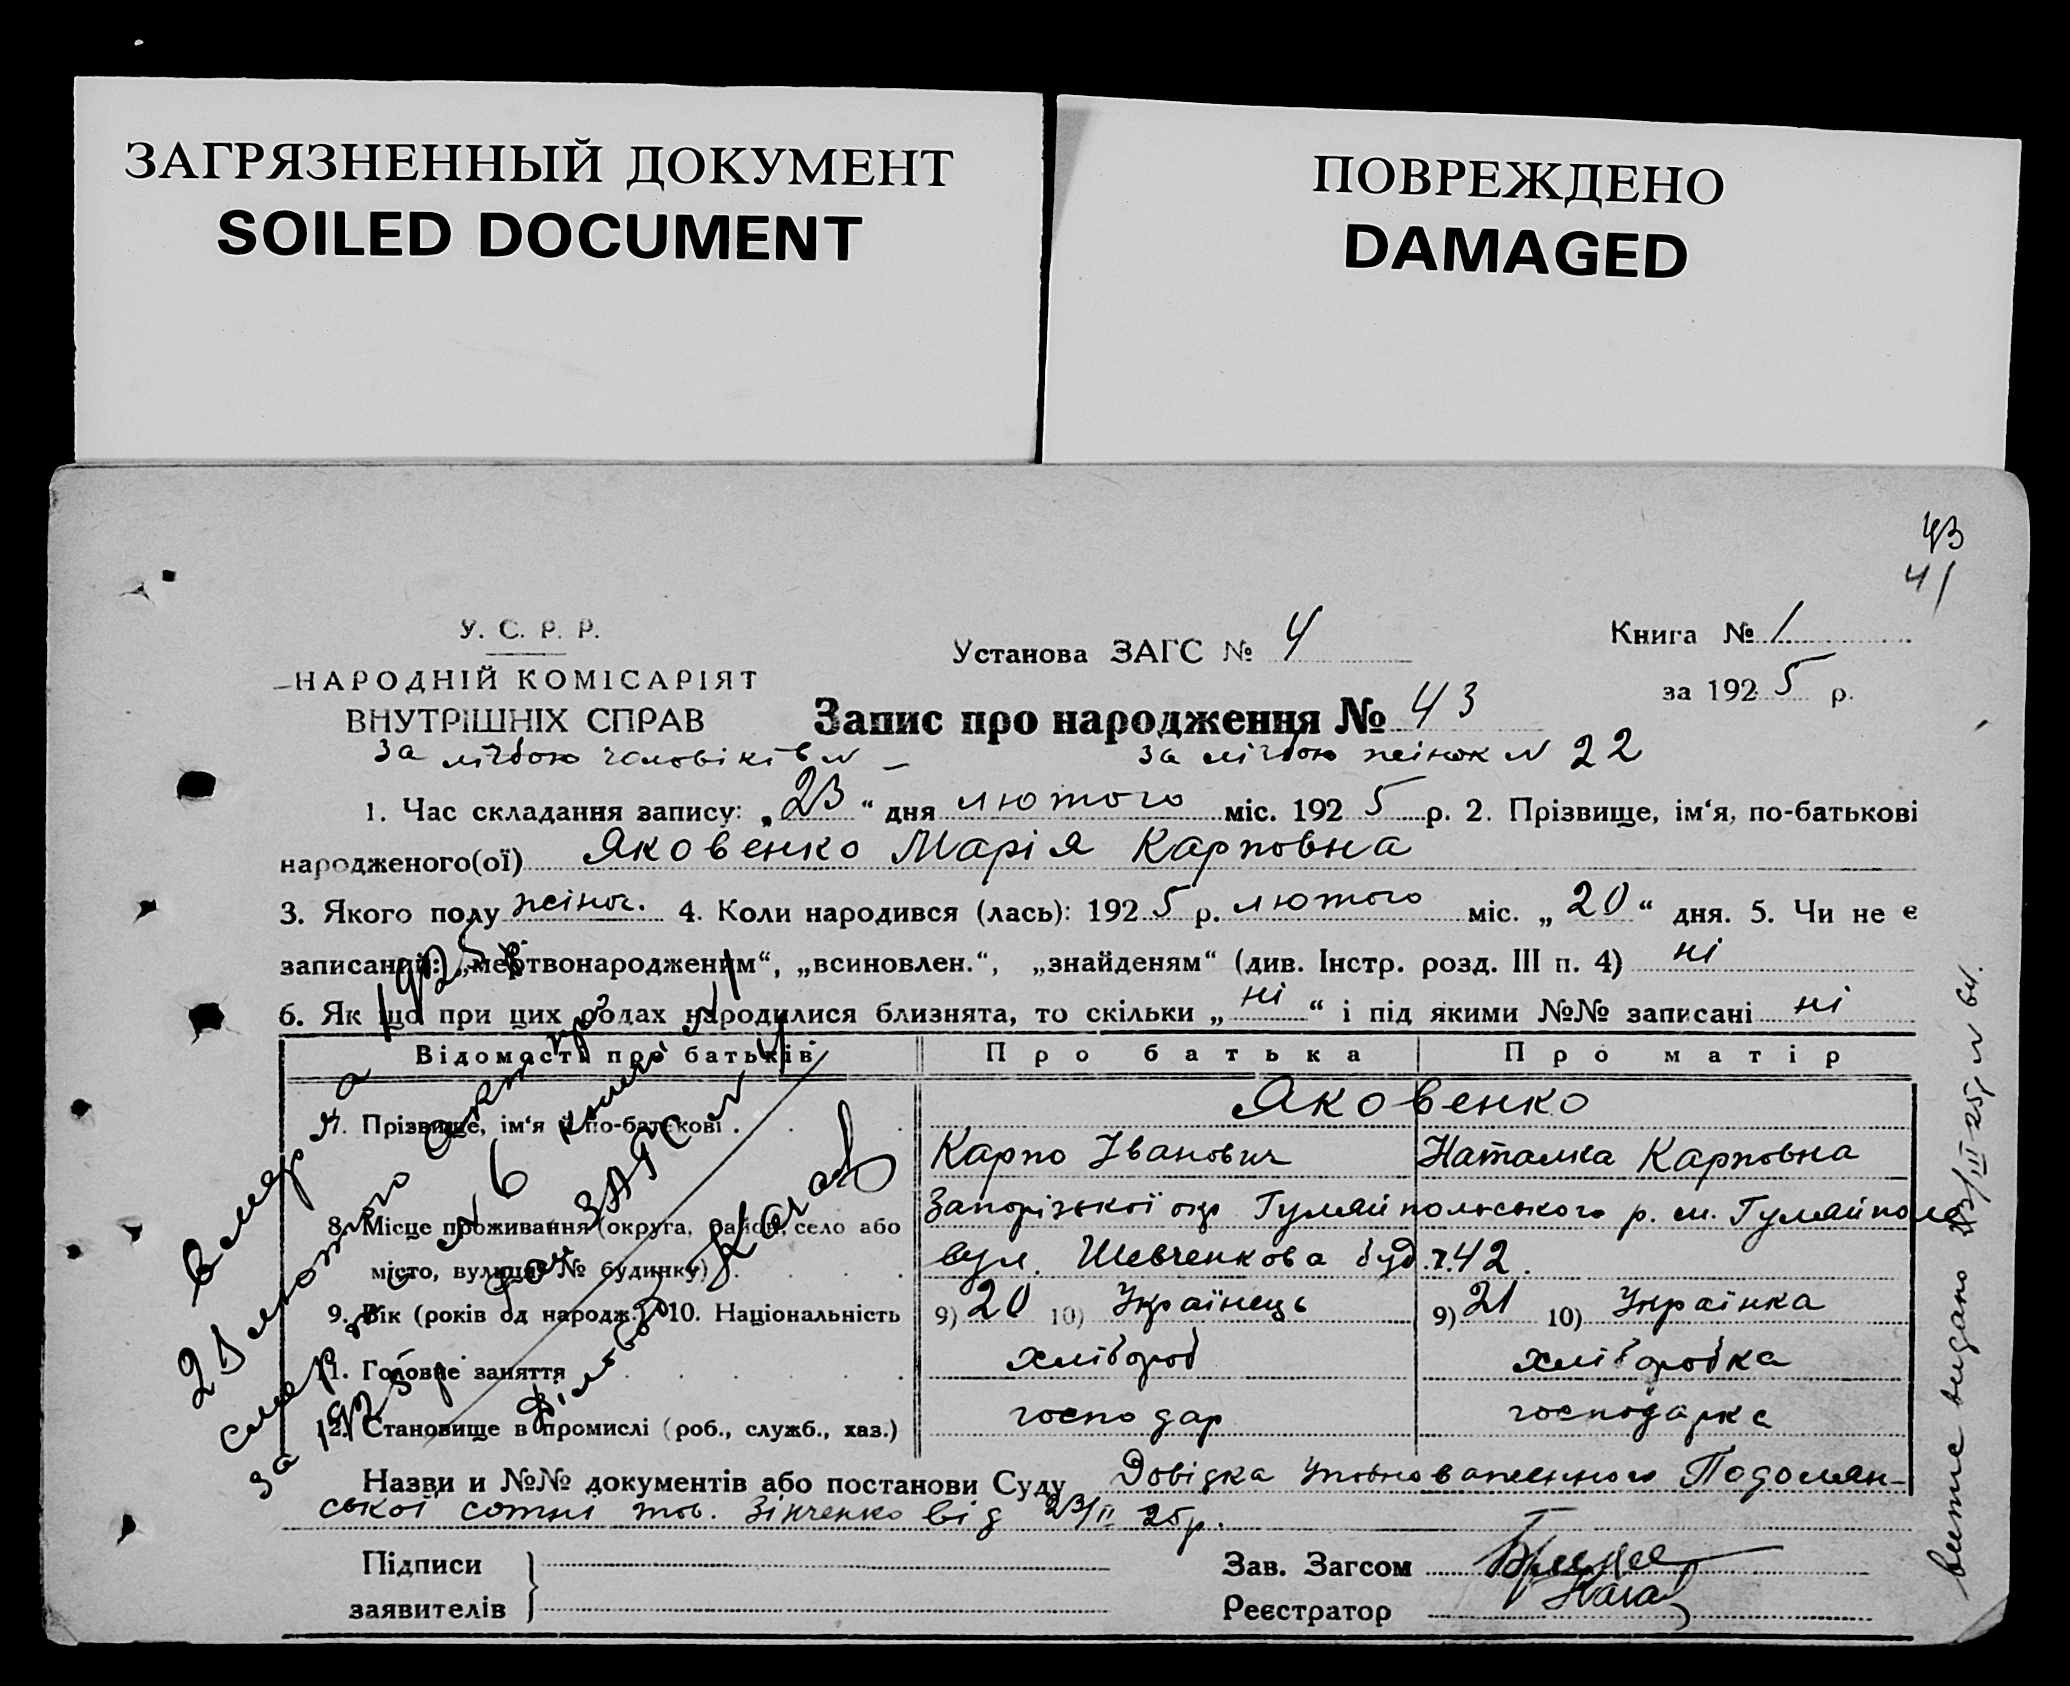 ЗАГРЯЗНЕННЫЙ ДОКУМЕНТ
SOILED DOCUMENT
ПОВРЕЖДЕНО
DAMAGED
43
41
У. С. Р. Р.
НАРОДНІЙ КОМІСАРІЯТ
ВНУТРІШНІХ СПРАВ
Установа ЗАГС № 4
Книга № 1
за 1925 р.
Запис про народження № 43
за лічбою чоловіків № —
за лічбою жінок № 22
1. Час складання запису: „23“ дня лютого міс. 1925 р. 2. Прізвище, ім‘я, по-батькові
народженого(ої) Яковенко Марія Карповна
3. Якого полу жіноч. 4. Коли народився (лась): 1925 р. лютого міс. „20“ дня. 5. Чи не є
записаний: „мертвонародженим“, „всиновлен.“, „знайденям“ (див. Інстр. розд. III п. 4) ні
6. Як що при цих родах народилися близнята, то скільки „ні“ і під якими №№ записані ні
Відомости про батьків
Про батька
Про матір
7. Прізвище, ім‘я й по-батькові
Яковенко
Карпо Іванович
Наталка Карповна
8. Місце проживання (округа, район, село або
місто, вулиця, № будинку)
Запорізької окр Гуляйпольського р. м. Гуляйполе
вул. Шевченкова буд. ч. 42.
9. Вік (років од народж.) 10. Національність
9) 20 10) Українець
9) 21 10) Українка
11. Головне заняття
хлібороб
хліборобка
12. Становище в промислі (роб., служб., хаз.)
господар
господарка
Назви и №№ документів або постанови Суду Довідка уповноваженного Подолян-
ської сотні тов. Зінченко від 23/II 25р.
Підписи
заявителів
Зав. Загсом
Реєстратор
Вмерла 1925 р.
21 лютого
смерть № 6 книга № 1
за 1925 р. ЗАГС № 4
Діловод
витяг видано 23/III 25р № 64.